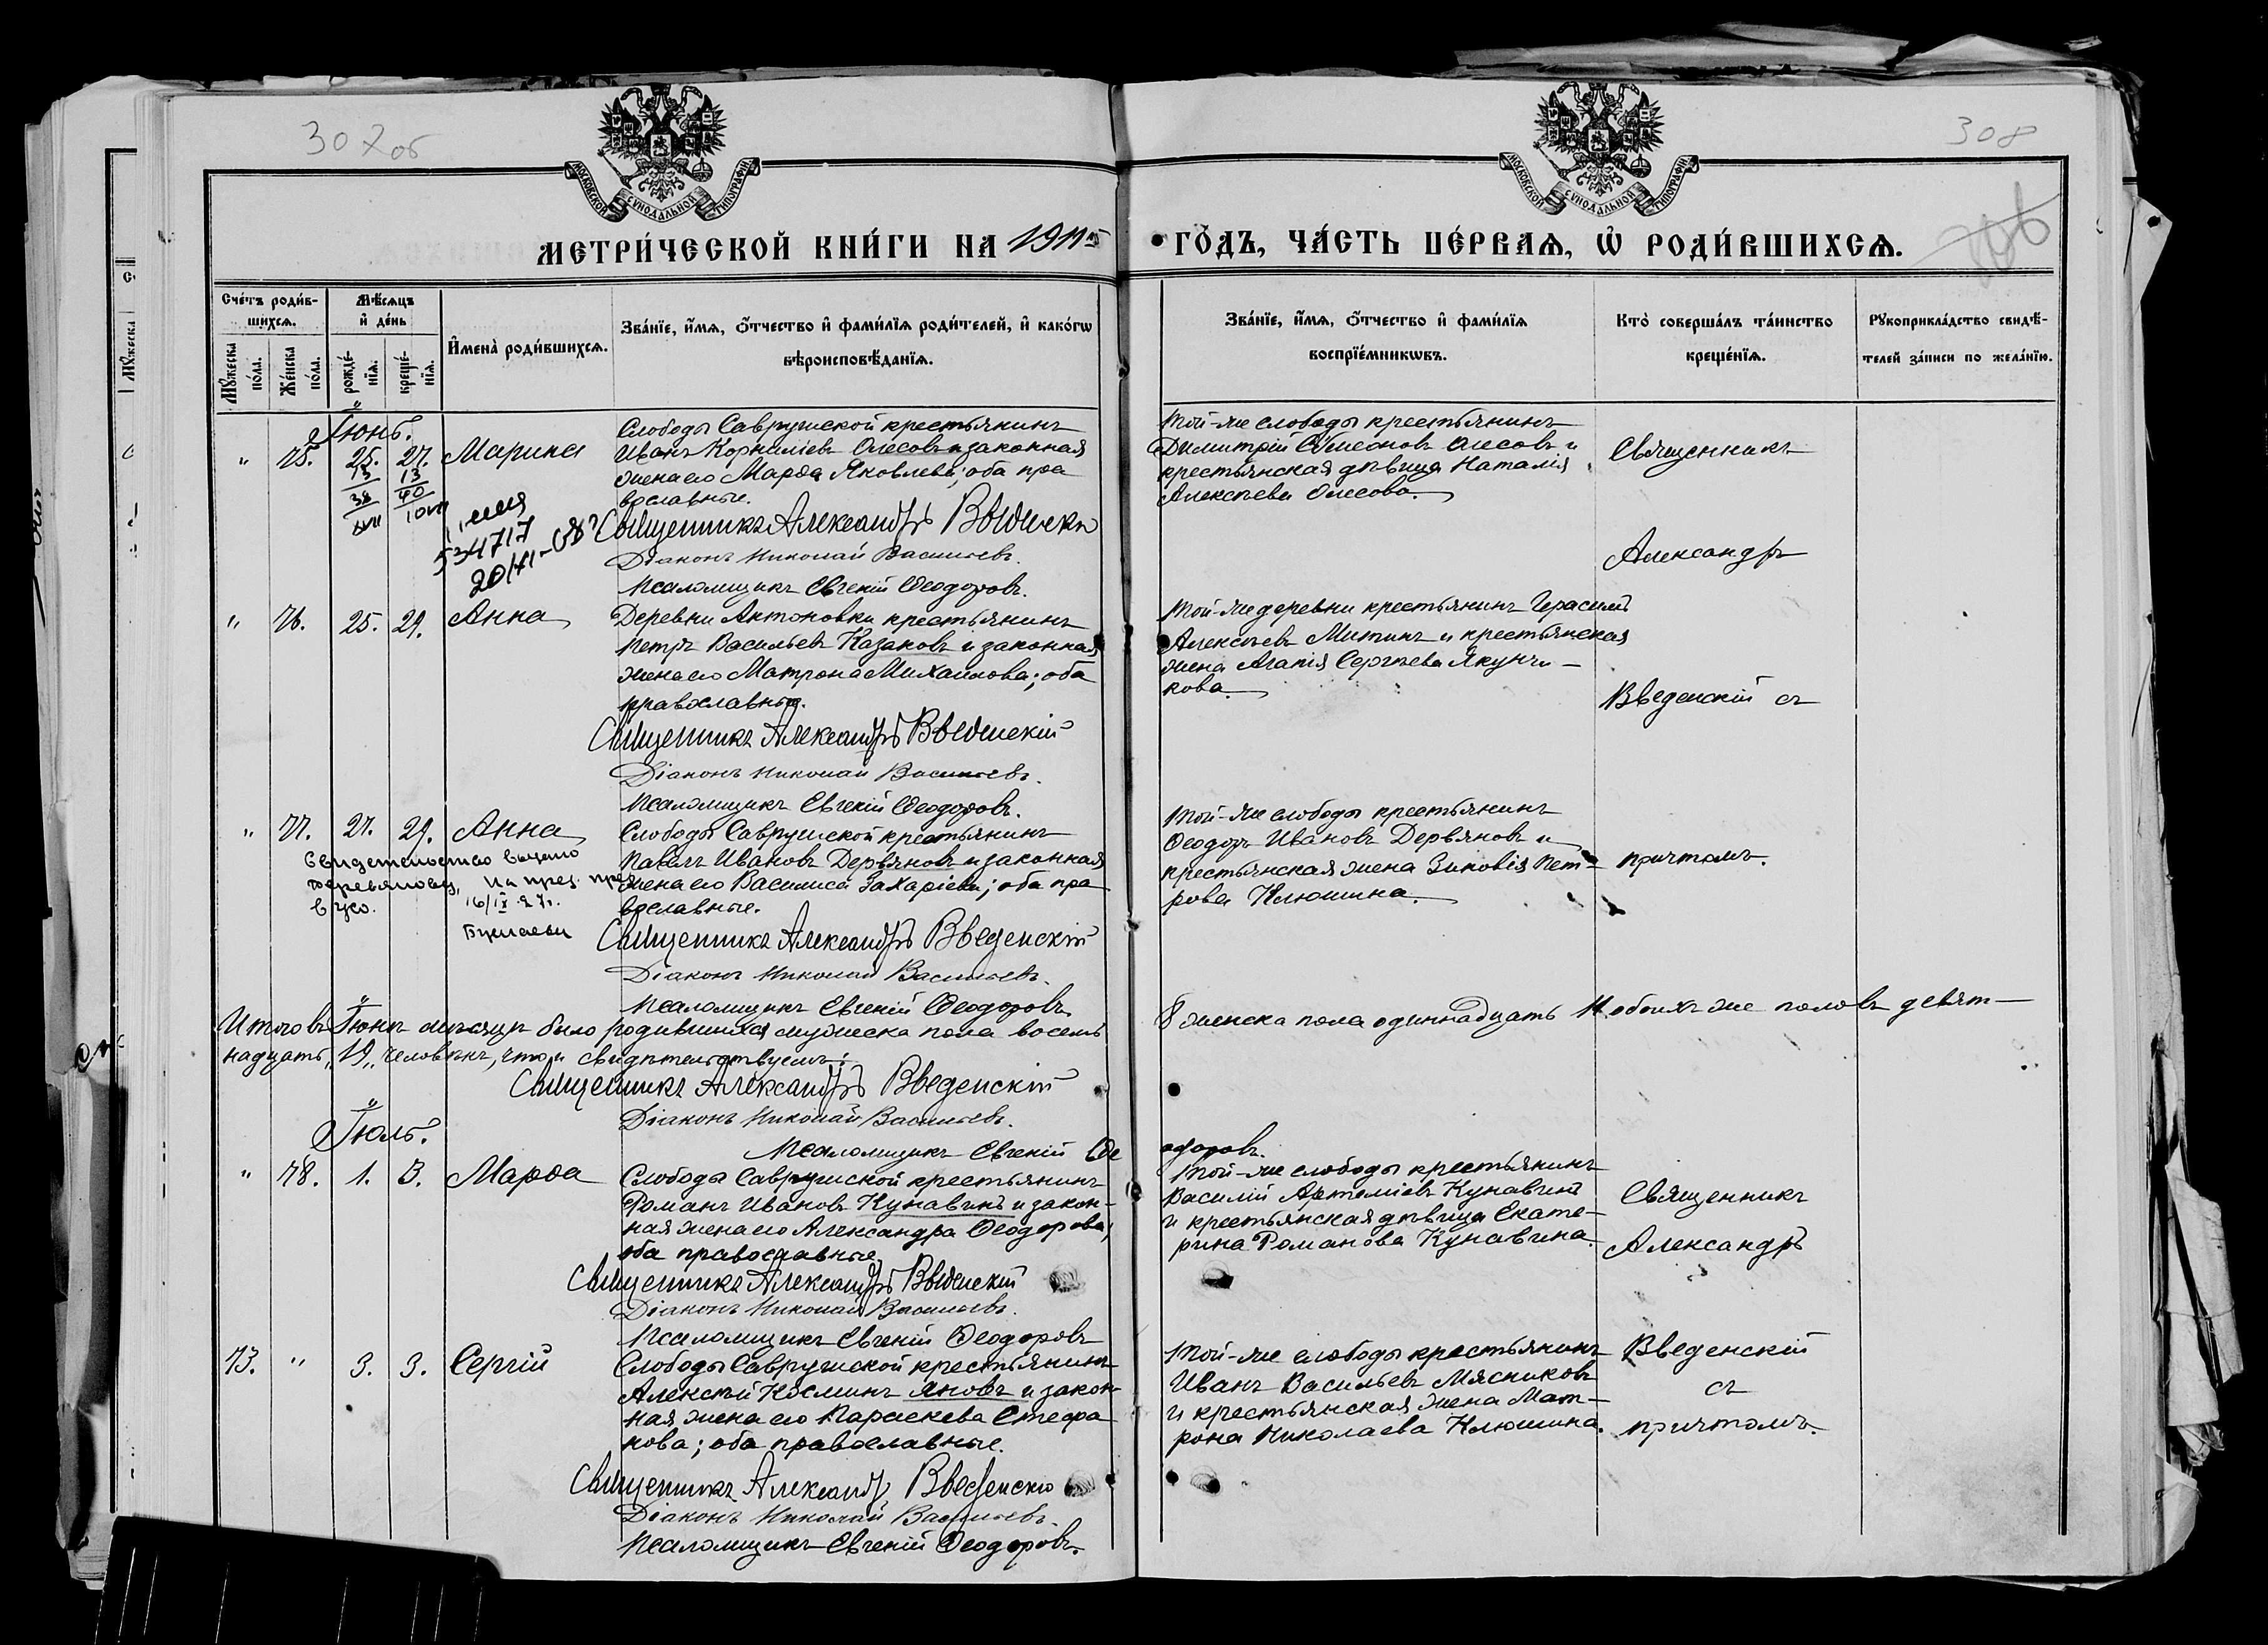 307об
308
МОСКОВСКОЙ СѴНОДАЛЬНОЙ ТИПОГРАФІИ
МОСКОВСКОЙ СѴНОДАЛЬНОЙ ТИПОГРАФІИ
МЕТРИ́ЧЕСКОЙ КНИ́ГИ НА 1911й
ГО́ДЪ, ЧА́СТЬ ПЕ́РВАѦ, Ѡ҆ РОДИ́ВШИХСѦ.
Сче́тъ роди́в-
шихсѧ.
Мꙋ́жеска по́ла.
Же́нска по́ла.
Мѣ́сѧцъ
и҆ де́нь
рожде́-
нїѧ.
креще́-
нїѧ.
И҆мена̀ роди́вшихсѧ.
Зва́нїе, и҆́мѧ, ѻ҆́тчество и҆ фами́лїѧ роди́телей, и҆ како́гѡ
вѣроисповѣ́данїѧ.
Зва́нїе, и҆́мѧ, ѻ҆́тчество и҆ фами́лїѧ
воспрїе́мникѡвъ.
Кто̀ соверша́лъ та́инство
креще́нїѧ.
Рꙋкоприкла́дство свидѣ́-
телей за́писи по жела́нїю.
Іюнь.
" 75. 25. 27. Марина
13 13
38 40
Слободы Саврушской крестьянинъ
Иванъ Корниліевъ Олесовъ и законная
жена его Марѳа Яковлева; оба пра
вославные.
534717
Священникъ Александръ Введенскій
Діаконъ Николай Васильевъ.
Псаломщикъ Евгеній Ѳеодоровъ.
Той-же слободы крестьянинъ
Димитрій Сѵмеоновъ Олесовъ и
крестьянская дѣвица Наталія
Алексѣева Олесова.
Священникъ
Александръ
" 76. 25. 29. Анна
Деревни Антоновки крестьянинъ
Петръ Васильевъ Казаковъ и законная
жена его Матрона Михаилова; оба
православные.
Священникъ Александръ Введенскій
Діаконъ Николай Васильевъ.
Псаломщикъ Евгеній Ѳеодоровъ.
Той-же деревни крестьянинъ Герасимъ
Алексѣевъ Митинъ и крестьянская
жена Агапія Сергѣева Якунчи-
кова.
Введенскій съ
" 77. 27. 29. Анна
Свидетельство выдано
Деревяновой,
16/IX 27г.
Слободы Саврушской крестьянинъ
Павелъ Ивановъ Дервяновъ и законная
жена его Василиса Захаріева; оба пра
вославные.
Священникъ Александръ Введенскій
Діаконъ Николай Васильевъ.
Псаломщикъ Евгеній Ѳеодоровъ
Той-же слободы крестьянинъ
Ѳеодоръ Ивановъ Дервяновъ и
крестьянская жена Зиновія Пет-
рова Клюшина.
причтомъ.
Итого въ Іюнѣ мѣсяцѣ было родившихся мужеска пола восемь
8 женска пола одиннадцать 11 обоихъ же половъ девят-
надцать „19„ человѣкъ, что и свидѣтельствуемъ:
Священникъ Александръ Введенскій
Діаконъ Николай Васильевъ.
Псаломщикъ Евгеній Ѳе
одоровъ.
Іюль.
" 78. 1. 3. Марѳа
Слободы Саврушской крестьянинъ
Романъ Ивановъ Кунавинъ и закон-
ная жена его Александра Ѳеодорова;
оба православные
Священникъ Александръ Введенскій
Діаконъ Николай Васильевъ.
Псаломщикъ Евгеній Ѳеодоровъ
Той-же слободы крестьянинъ
Василій Артеміевъ Кунавинъ
и крестьянская дѣвица Екате-
рина Романова Кунавина.
Священникъ
Александръ
73. " 3. 3. Сергій
Слободы Саврушской крестьянинъ
Алексѣй Косминъ Яновъ и закон-
ная жена его Параскева Стефа
нова; оба православные.
Священникъ Александръ Введенскій
Діаконъ Николай Васильевъ.
Псаломщикъ Евгеній Ѳеодоровъ.
Той-же слободы крестьянинъ
Иванъ Васильевъ Мясниковъ
и крестьянская жена Мат-
рона Николаева Клюшина.
Введенскій
съ
причтомъ.